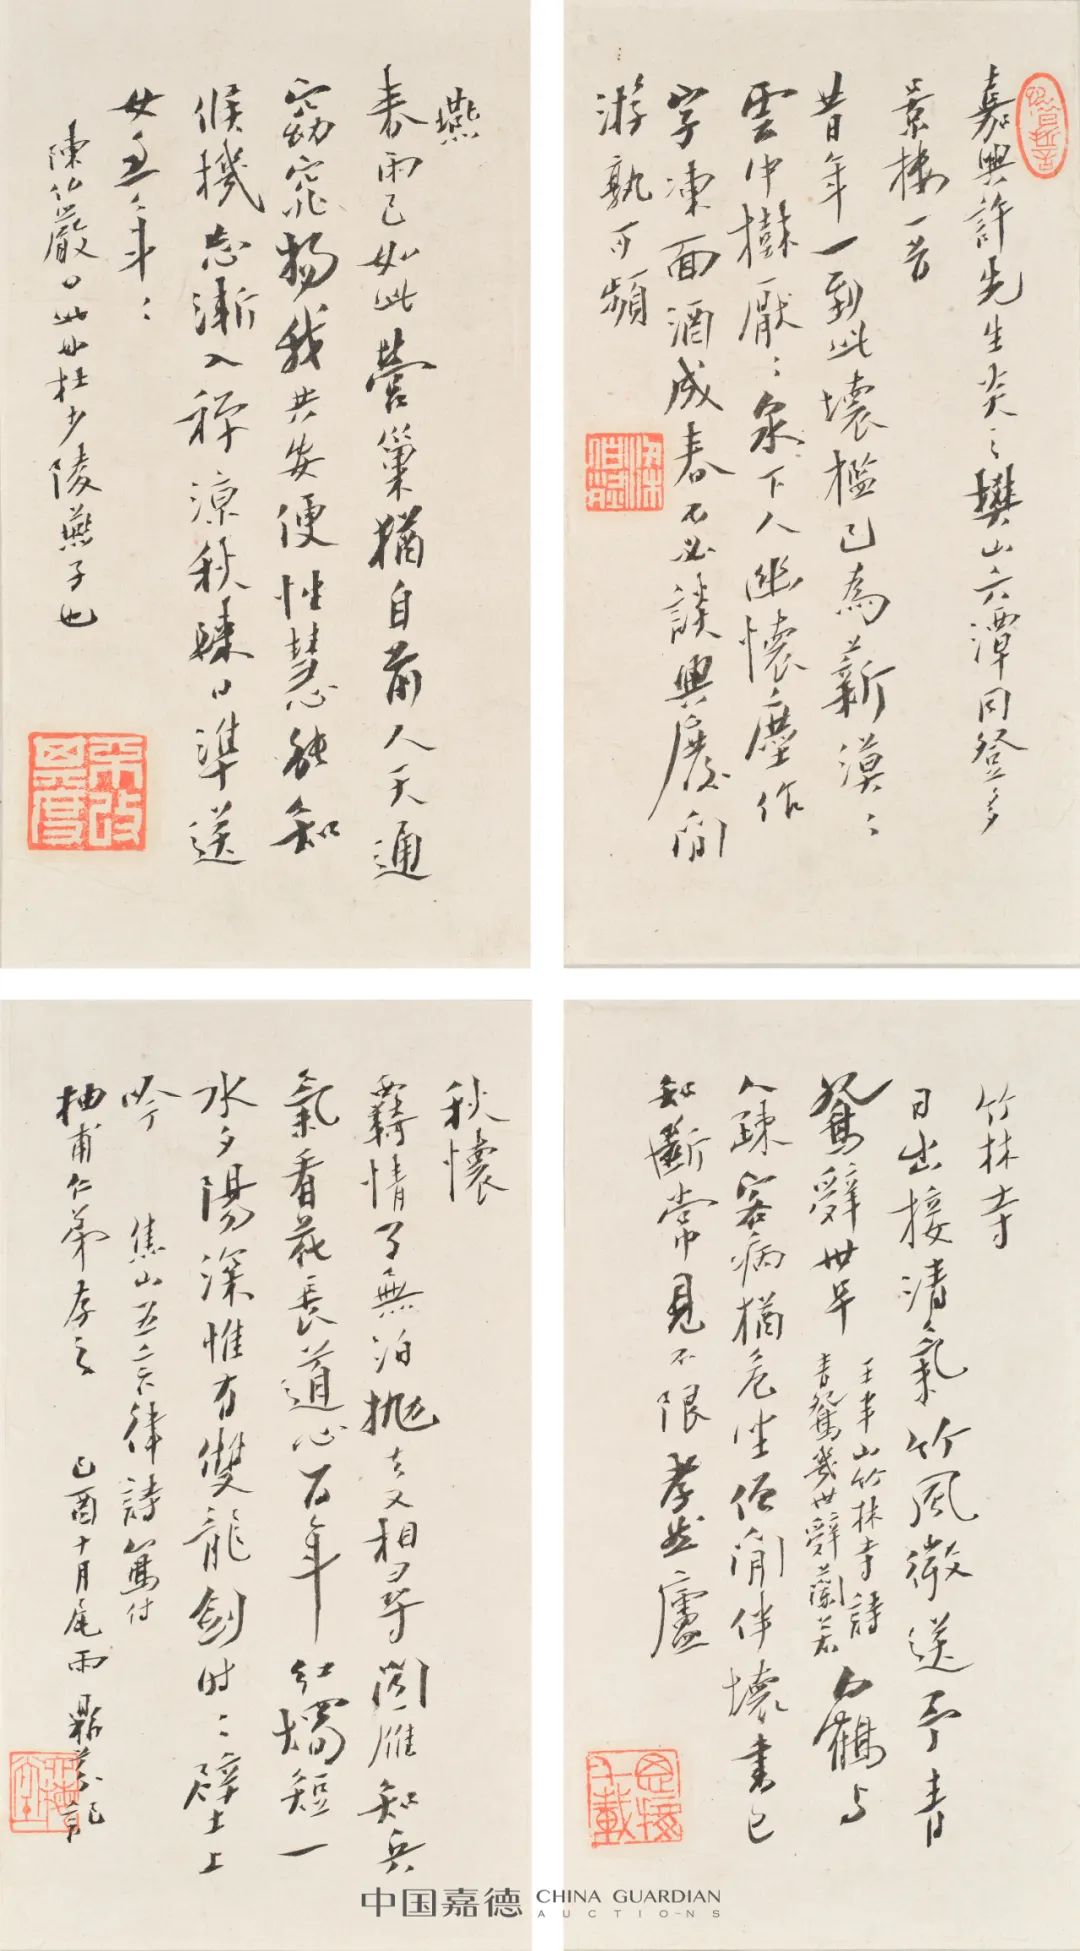 嘉興許先生炎之樊山六潭同登多
景樓一首
昔年一到此壞檻已為薪漠〻
雲中樹厭〻泉下人幽懷塵作
字凍面酒成春不必談興廢閒
游孰可頻
燕
春雨已如此營巢猶自前人天通
窈窕物我共安便性慧能知
候機忘漸入禪涼秋練日準送
女
年〻
陳伯嚴曰此如杜少陵燕子也
竹林寺
日出接清氣竹風微送予青
鴛辭世早
王半山竹林寺詩
青鴛幾世辭蘭若
白鶴与
人疎客病猶危坐僧閒伴壞書已
知斷常見不限孝然廬
秋懷
羇情了無泊拋去又相尋聞雁知兵
氣看花長道心百年紅燭短一
水夕陽深惟有雙龍劍時〻壁上
吟
焦山五言律詩寫付
柚甫仁弟存之
己酉十月尾雨
中国嘉德 CHINA GUARDIAN
AUCTIONS